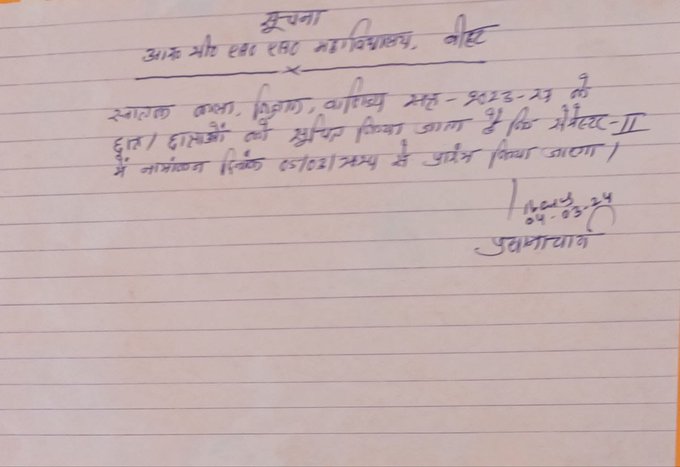 सूचना
आर० सी० एस० एस० महाविद्यालय, बीहट
स्नातक कला, विज्ञान, वाणिज्य सत्र - 2023-27 के
छात्र / छात्राओं को सूचित किया जाता है कि सेमेस्टर-II
में नामांकन दिनांक 05/03/2024 से प्रारंभ किया जाएगा।
04-03-24
प्रधानाचार्य